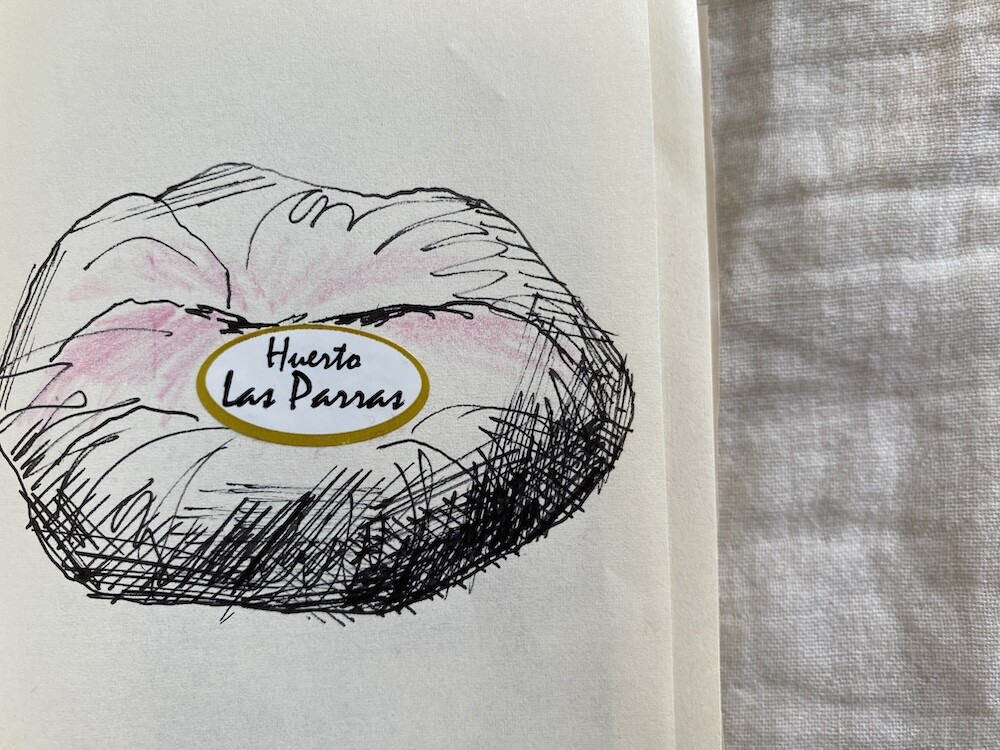 Huerto
Las Parras